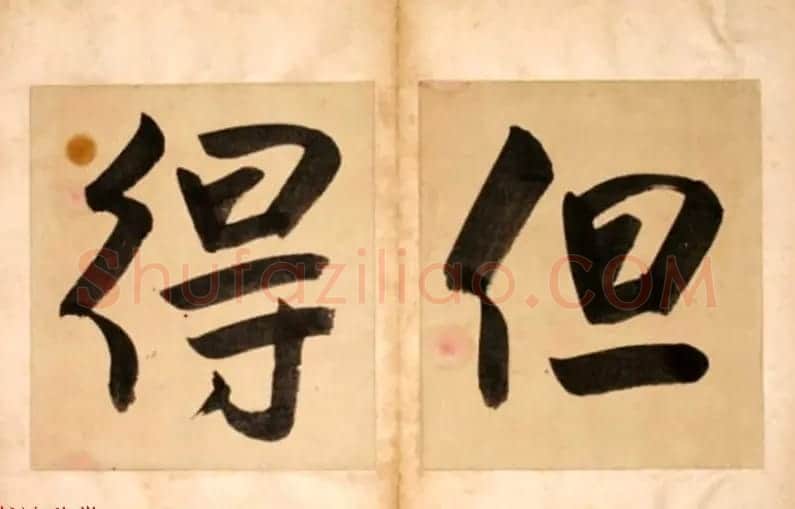 但
得
Shufaziliao.COM